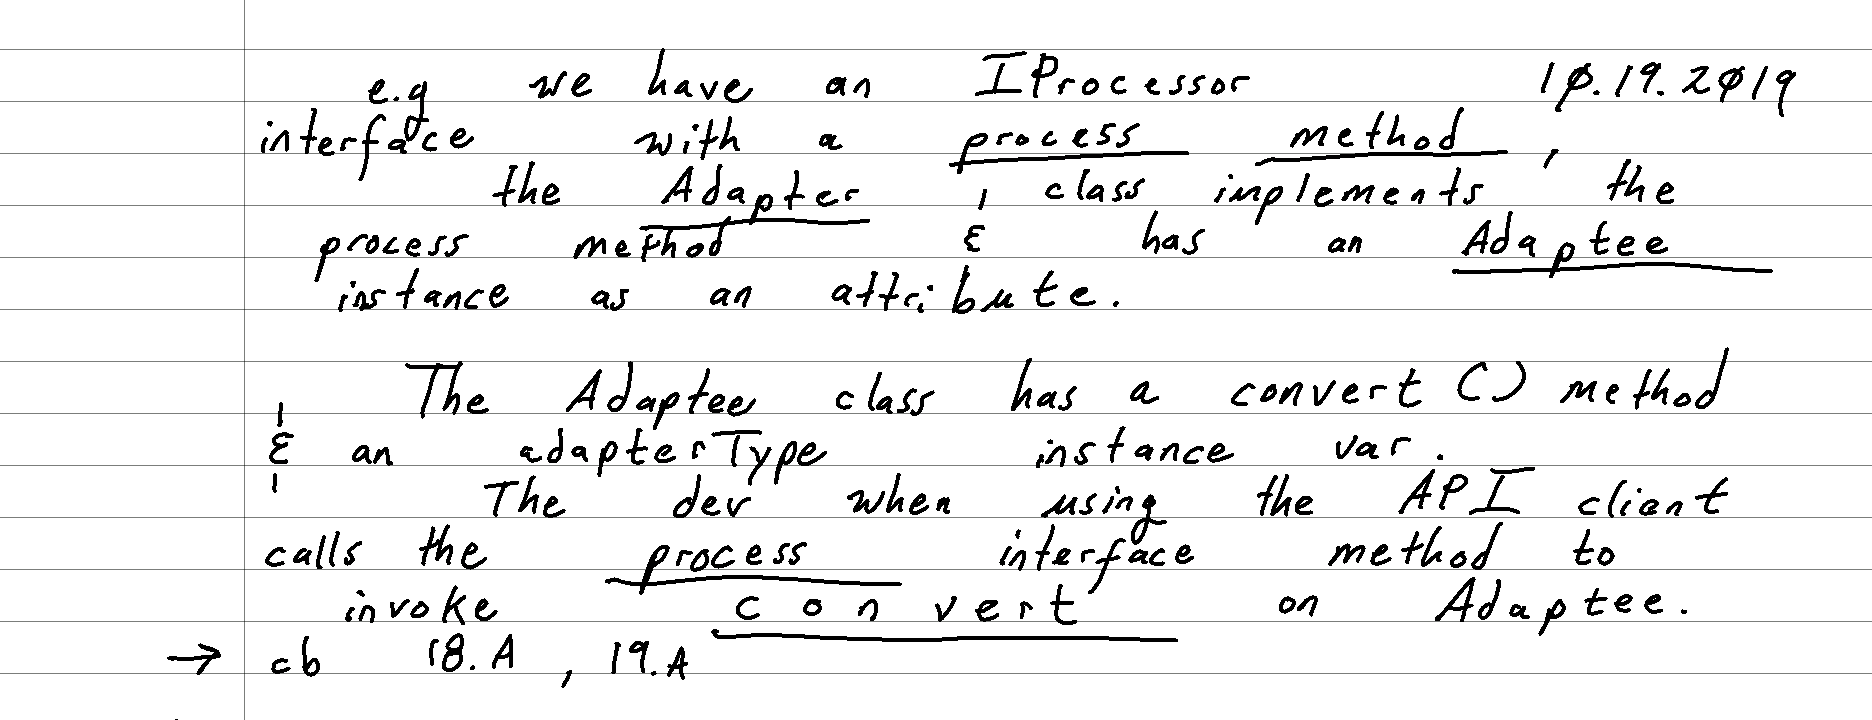 e.g we have an IProcessor 10.19.2019
interface with a process method,
the Adapter class implements the
process method & has an Adaptee
instance as an attribute.
The Adaptee class has a convert() method
& an adapterType instance var.
The dev when using the API client
calls the process interface method to
invoke convert on Adaptee.
→ cb 18.A, 19.A